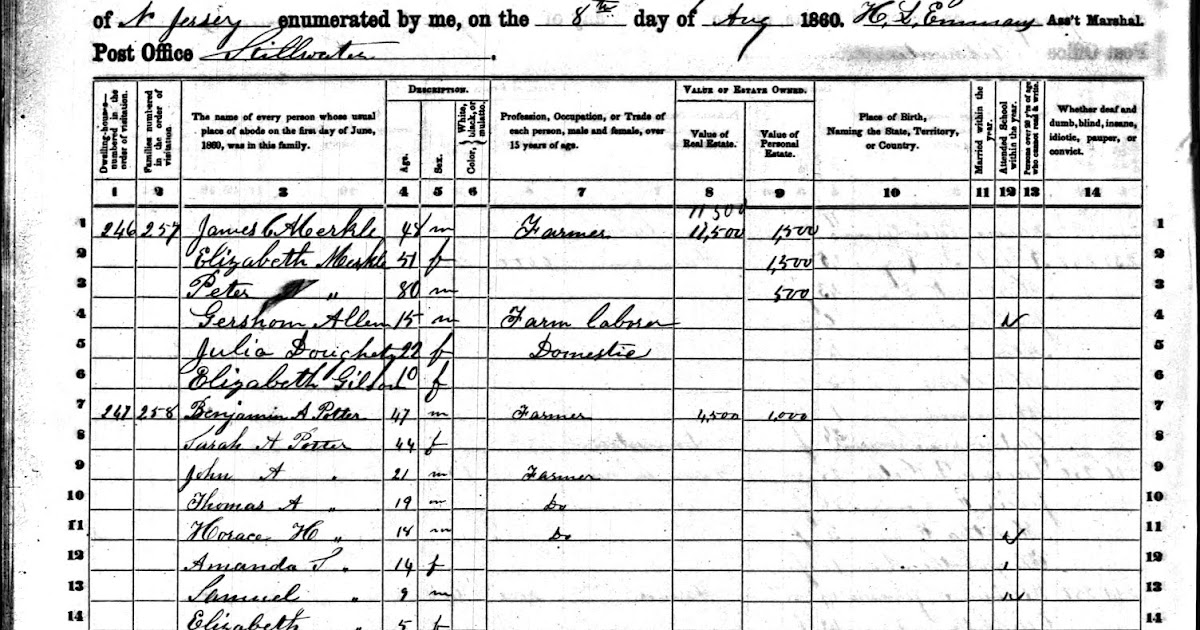 of N Jersey enumerated by me, on the 8th day of Aug 1860. H. L. Emmans Ass't Marshal.
Post Office Stillwater.
Dwelling-houses—numbered in the order of visitation.
Families numbered in the order of visitation.
The name of every person whose usual place of abode on the first day of June, 1860, was in this family.
DESCRIPTION.
Age.
Sex.
Color, White, black, or mulatto.
Profession, Occupation, or Trade of each person, male and female, over 15 years of age.
VALUE OF ESTATE OWNED.
Value of Real Estate.
Value of Personal Estate.
Place of Birth, Naming the State, Territory, or Country.
Married within the year.
Attended School within the year.
Persons over 20 y'rs of age who cannot read & write.
Whether deaf and dumb, blind, insane, idiotic, pauper, or convict.
1 2 3 4 5 6 7 8 9 10 11 12 13 14
11 500
1 246 257 James C Merkle 48 m Farmer 11,500 1,500 1
2 Elizabeth Merkle 51 f 1,500 2
3 Peter " 80 m 500 3
4 Gershom Allen 15 m Farm laborer 4
5 Julia Doughety 22 f Domestic 5
6 Elizabeth Gilson 10 f 6
7 247 258 Benjamin A Potter 47 m Farmer 4,500 1,000 7
8 Sarah A Potter 44 f 8
9 John A " 21 m Farmer 9
10 Thomas A " 19 m Do 10
11 Horace H " 18 m Do 11
12 Amanda S " 14 f 12
13 Samuel " 9 m 13
14 Elizabeth " 5 f 14